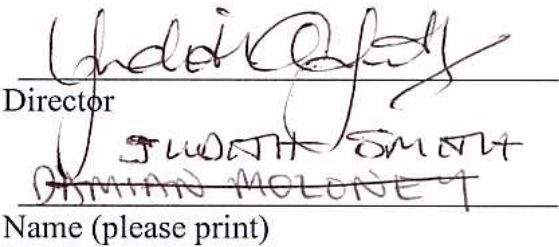 Director
JUDITH SMITH
DAMIAN MOLONEY
Name (please print)